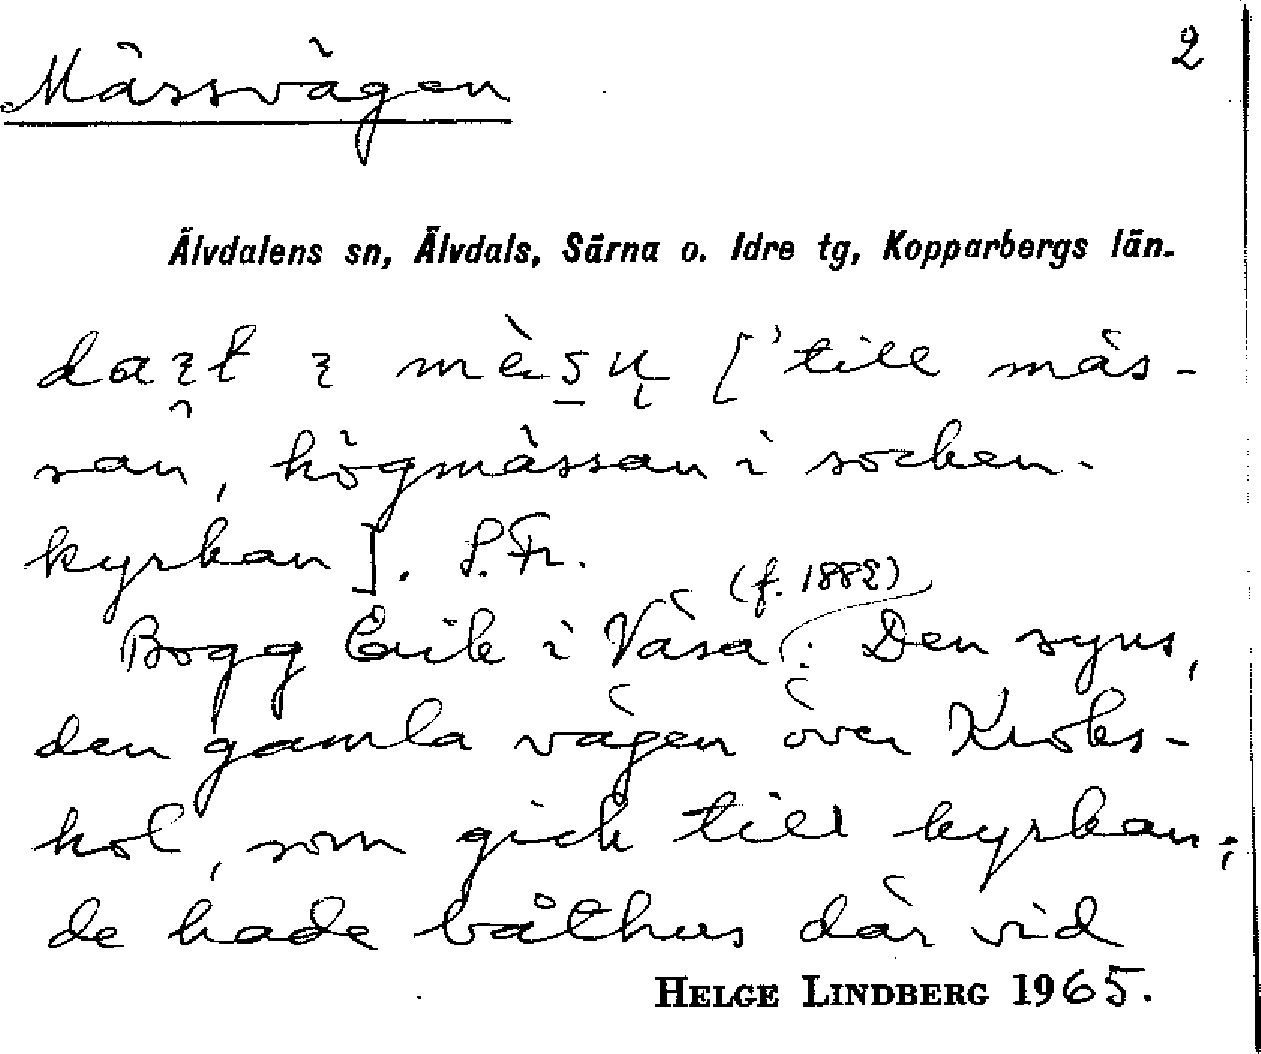 Mässvägen 2
Älvdalens sn, Älvdals, Särna o. Idre tg, Kopparbergs län.
['till mäs-
san, högmässan i socken-
kyrkan]. S. Fr.
(f. 1882)
Bogg Erik i Våsa: Den syns,
den gamla vägen över Kroks-
hol, som gick till kyrkan;
de hade båthus där vid
HELGE LINDBERG 1965.